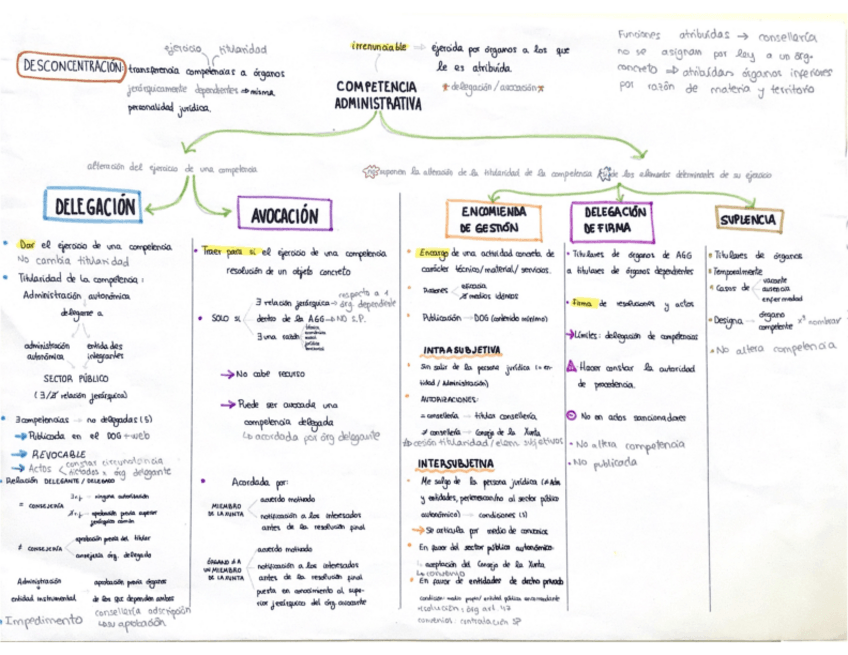 DESCONCENTRACIÓN:
ejercicio titularidad
transferencia competencias a órganos
jerárquicamente dependientes ⇒ misma
personalidad jurídica.
irrenunciable → ejercida por órganos a los que
le es atribuida.
*delegación / avocación*
COMPETENCIA
ADMINISTRATIVA
Funciones atribuídas → consellaría
no se asignam por ley a un órg.
concreto ⇒ atribuídas órganos inferiores
por razón de materia y territorio
alteración del ejercicio de una competencia
suponen la alteración de la titularidad de la competencia de los elementos determinantes de su ejercicio
DELEGACIÓN
• Dar el ejercicio de una competencia
No cambia titularidad
• Titularidad de la competencia:
Administración autonómica
delegarse a
administración autonómica
entidades integrantes
SECTOR PÚBLICO
(∃/∄ relación jerárquica)
• ∃ competencias → no delegadas (5)
→ Publicada en el DOG + web
→ REVOCABLE
→ Actos constar circunstancia
dictados x órg delegante
• Relación DELEGANTE / DELEGADO
= CONSEJERÍA
aprobación previa superior
jerárquico común
≠ CONSEJERÍA
aprobación previa del titular
consejería órg. delegado
Administración
entidad instrumental
aprobación previa órganos
de los que dependen ambos
• Impedimento consellaría adscripción
aprobación
AVOCACIÓN
• Traer para sí el ejercicio de una competencia
resolución de un objeto concreto
• SOLO si
∃ relación jerárquica → respecto a 1
órg. dependiente
dentro de la AGG → NO S.P.
∃ una razón
→ No cabe recurso
→ Puede ser avocada una
competencia delegada
↳ acordada por órg delegante
• Acordada por:
MIEMBRO
DE LA XUNTA
acuerdo motivado
notificación a los interesados
antes de la resolución final
ÓRGANO ≠ A
UN MIEMBRO
DE LA XUNTA
acuerdo motivado
notificación a los interesados
antes de la resolución final
puesta en conocimiento al supe-
rior jerárquico del órg. avocante
ENCOMIENDA
DE GESTIÓN
• Encargo de una actividad concreta de
carácter técnico/material/servicios.
• Razones
eficacia
∄ medios idóneos
Publicación → DOG (contenido mínimo)
INTRASUBJETIVA
• Sin salir de la persona jurídica (= en-
tidad / Administración)
• AUTORIZACIONES:
= consellería → titular consellería
≠ consellería → Consejo de la Xunta
cesión titularidad / elem. subjetivos
INTERSUBJETIVA
• Me salgo de la persona jurídica
y entidades, pertenezcan/no al sector público
autonómico) → condiciones (3)
→ Se articula por medio de convenios
• En favor del sector público autonómico:
aceptación del Consejo de la Xunta
↳ convenio
• En favor de entidades de dcho privado
resolución: órg art. 47
convenios: contratación SP
DELEGACIÓN
DE FIRMA
• Titulares de órganos de AGG
a titulares de órganos dependientes
• Firma de resoluciones y actos
→ Límites: delegación de competencias
Hacer constar la autoridad
de procedencia.
No en actos sancionadores
• No altera competencia
• No publicada
SUPLENCIA
• Titulares de órganos
• Temporalmente
• Casos de
vacante
ausencia
enfermedad
• Designa → órgano
competente xª nombrar
• No altera competencia